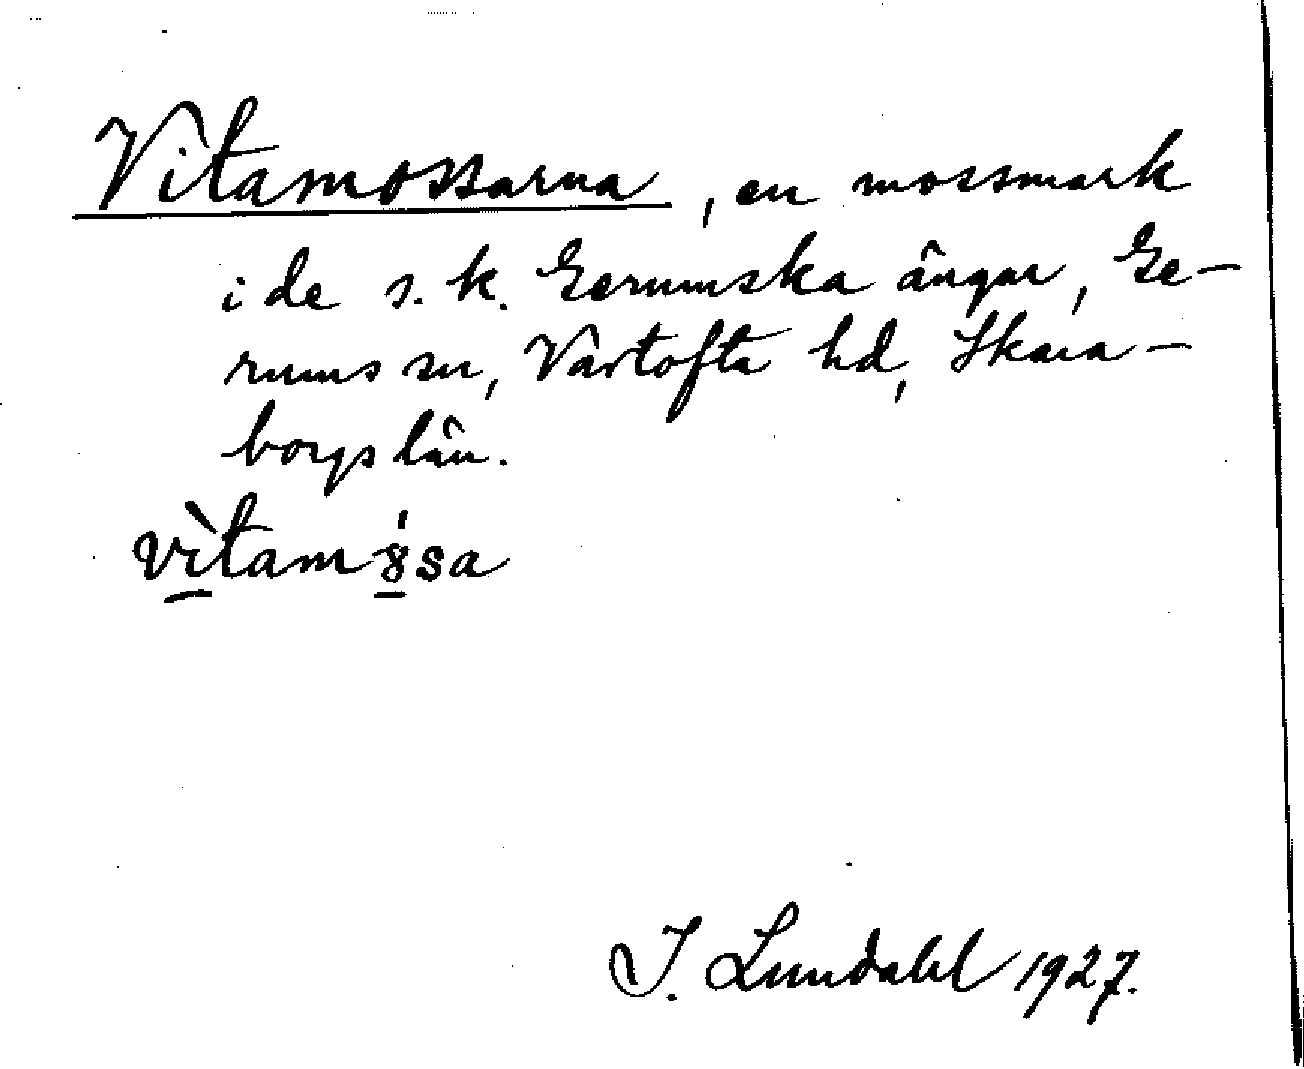 Vitamossarna, en mossmark
i de s. k. Gerumska ängar, Ge-
rums sn, Vartofta hd, Skara-
borgs län.
vìtamósa
J. Lundahl 1927.